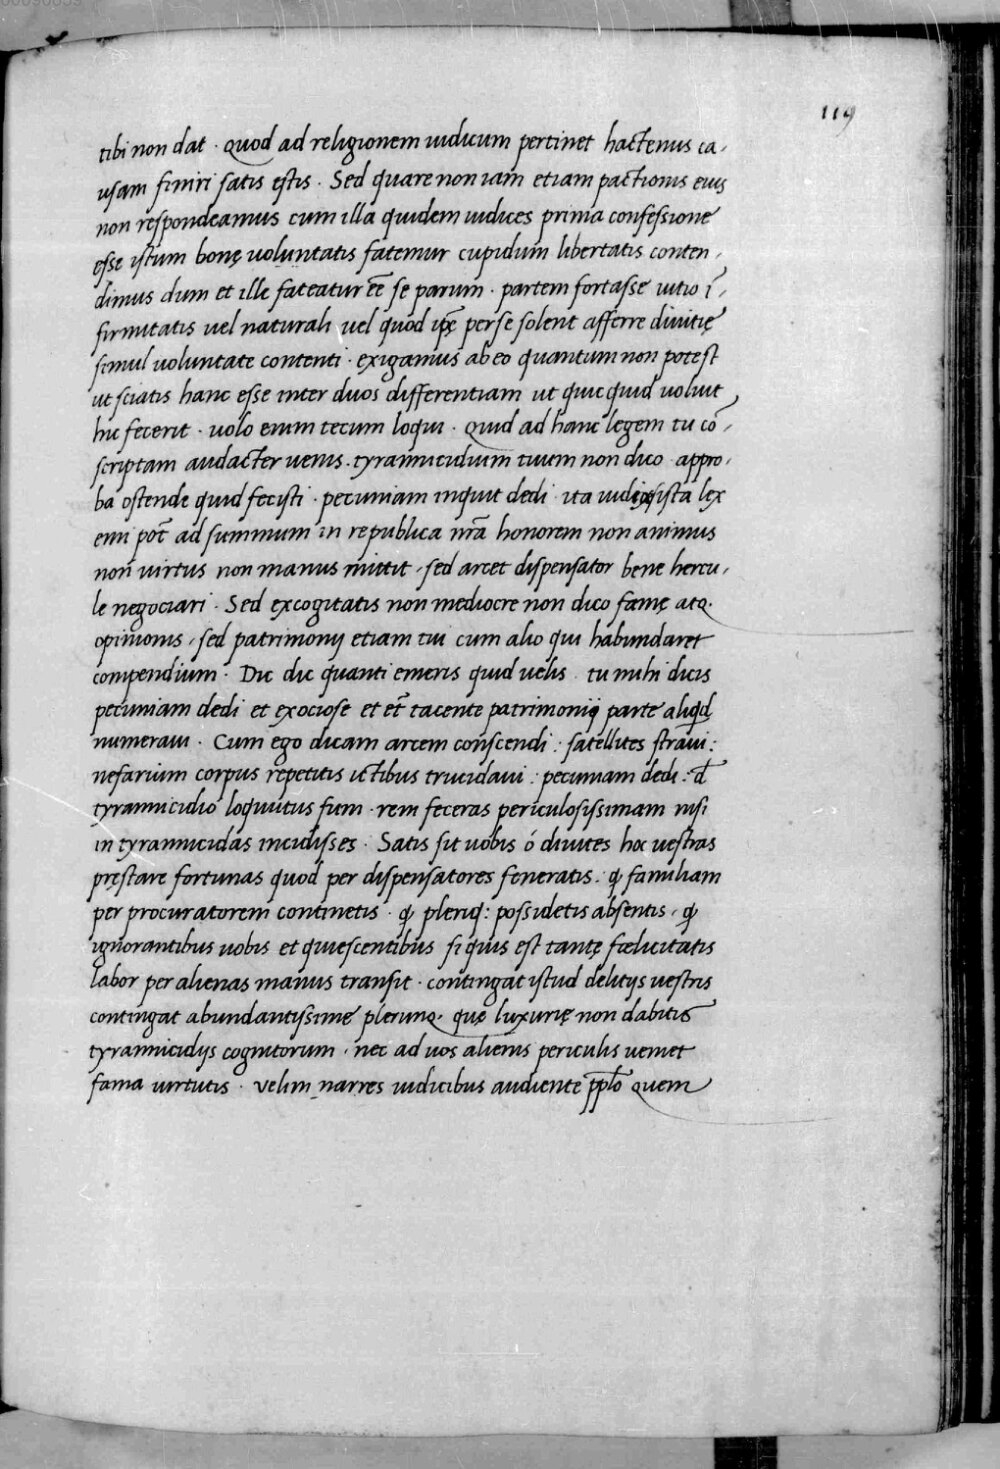 00090859
119
tibi non dat · quod ad religionem iudicum pertinet hactenus ca,
usam finiri satis estis · Sed quare non iam etiam pactionis eius
non respondeamus cum illa quidem iudices prima confessione
esse istum bonę voluntatis fatemur cupidum libertatis conten,
dimus dum et ille fateatur eē se parum · partem fortasse uitio ī,
firmitatis uel naturali uel quod ipę per se solent afferre diuitię
simul uoluntate contenti · exigamus ab eo quantum non potest
ut sciatis hanc esse inter duos differentiam ut quicquid uoluit
hic fecerit · uolo enim tecum loqui · Quid ad hanc legem tu cō,
scriptam audacter uenis · tyrannicidium tuum non dico · appro,
ba ostende quid fecisti · pecuniam inquit dedi · ita ista lex
eni pōt ad summum in republica nrā honorem non animus
non uirtus non manus mittit, sed arcet dispensator bene hercu,
le negociari · Sed excogitatis non mediocre non dico famę atq·
opinionis, sed patrimonij etiam tui cum alio qui habundaret
compendium · Dic dic quanti emeris quid uelis · tu mihi dicis
pecuniam dedi et exociose et et̄ tacente patrimonij parte aliq̄d
numeraui · Cum ego dicam arcem conscendi : satellites straui :
nefarium corpus repetitis ictibus trucidaui : pecuniam dedi : d̄
tyrannicidio loquutus sum · rem feceras periculosissimam nisi
in tyrannicidas incidisses · Satis sit uobis ó diuites hoc uestras
pręstare fortunas quod per dispensatores feneratis : q̄ familiam
per procuratorem continetis · q̄ pleriq: possidetis absentis, q̄
ignorantibus uobis et quiescentibus si quis est tantę fœlicitatis
labor per alienas manus transit · contingat istud delitijs uestris
contingat abundantissime plerunq· quę luxurię non dabitis
tyrannicidijs cognitorum, nec ad uos alienis periculis ueniet
fama uirtutis · velim narres iudicibus audiente pp̄lo quem